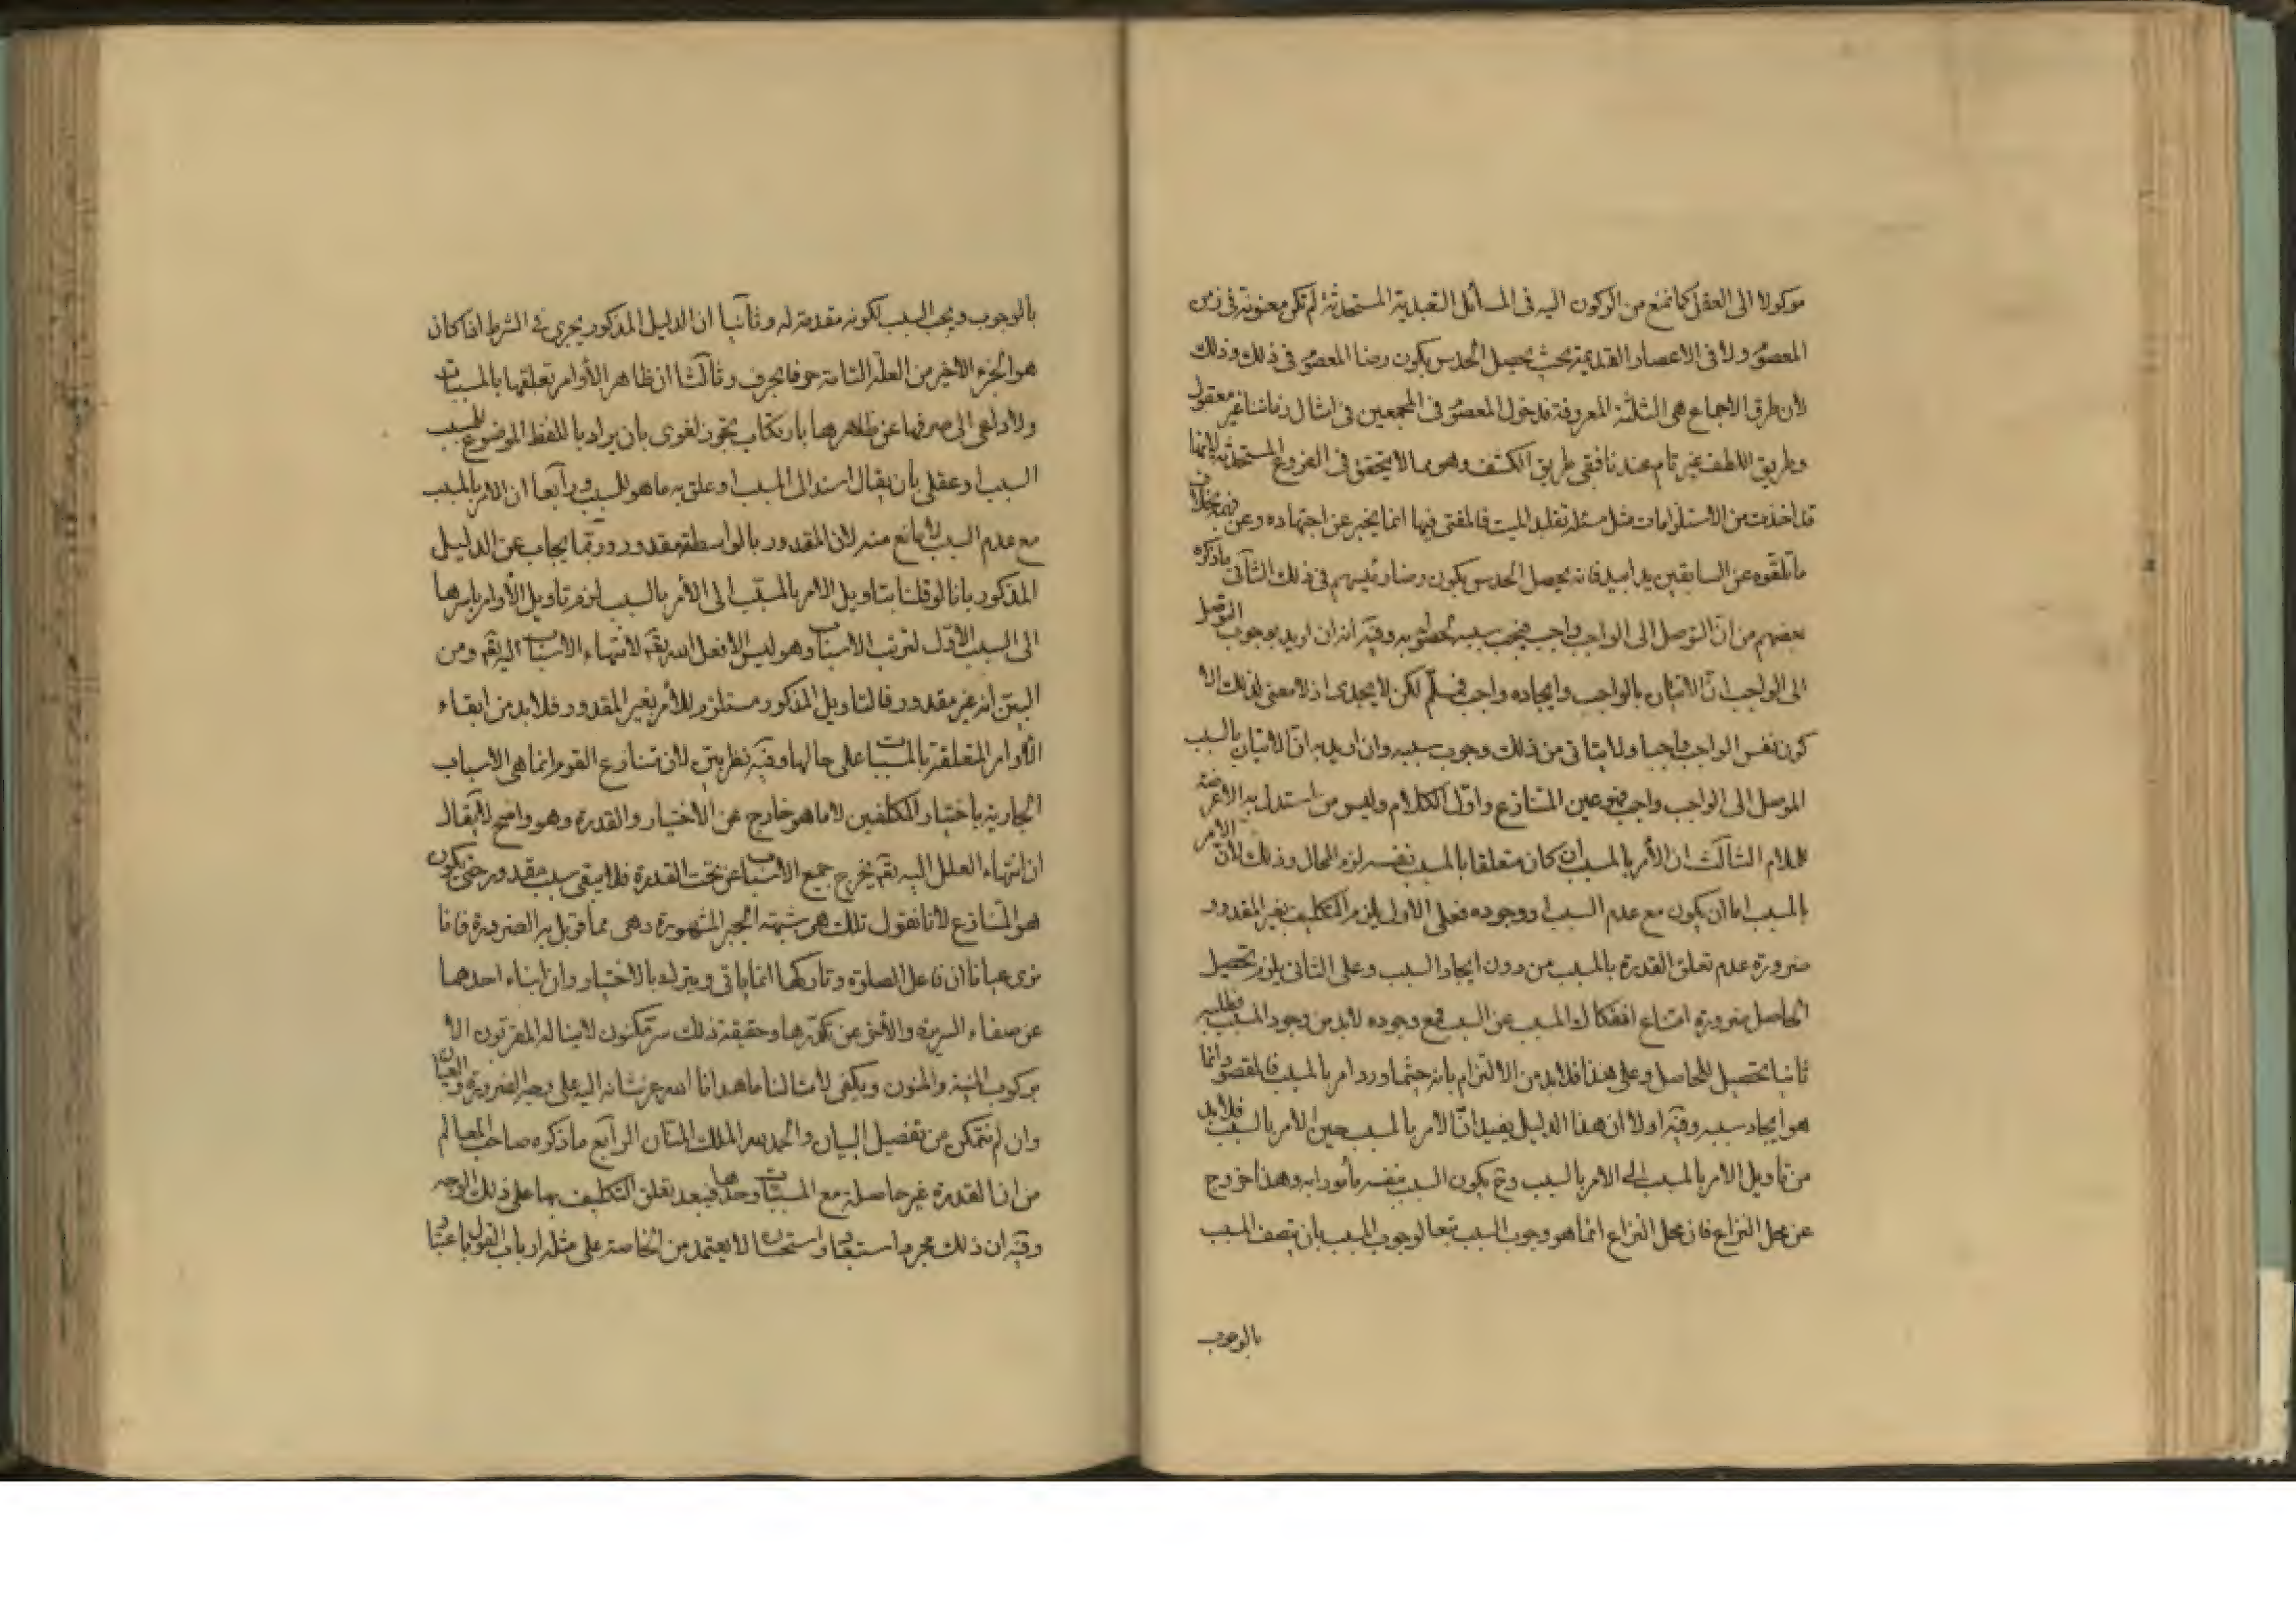 موكولا الى العقل كما نمنع من الركون اليه فى المسائل التعبدية المستحدثة لم تكن معنونة فى زمن
المعصوم ولا فى الاعصار القديمة بحيث يحصل الحدس بكون رضا المعصوم فى ذلك وذلك
لأن طرق الاجماع هى الثلثة المعروفة فدخول المعصوم فى المجمعين فى امثال زماننا غير معقول
وطريق اللطف غير تام عندنا فبقى طريق الكشف وهو مما لا يتحقق فى الفروع المستحدثة لانها
قد اخذت من الاستلزامات مثل مسئلة تقليد الميت فالمفتى فيها انما يخبر عن اجتهاده وعن فهمه بخلاف
ما تلقوه عن السابقين يدا بيد فانه يحصل الحدس بكون رضا رئيسهم فى ذلك الثانى ما ذكره
بعضهم من ان التوصل الى الواجب واجب فيجب سببه لحصوله به وفيه انه ان اريد بوجوب التوصل
الى الواجب ان الاتيان بالواجب وايجاده واجب فمسلم لكن لا يجدى اذ لا معنى لذلك الا
كون نفس الواجب واجبا ولا يتاتى من ذلك وجوب سببه وان اريد به ان الاتيان بالسبب
الموصل الى الواجب واجب فهو عين المتنازع واول الكلام وليس من استدل به الا عرضة
للملام الثالث ان الأمر بالمسبب ان كان متعلقا بالمسبب نفسه لزم المحال وذلك لأن الامر
بالمسبب اما ان يكون مع عدم السبب او وجوده فعلى الاول يلزم التكليف بغير المقدور
ضرورة عدم تعلق القدرة بالمسبب من دون ايجاد السبب وعلى الثانى يلزم تحصيل
الحاصل ضرورة امتناع انفكاك المسبب عن السبب فمع وجوده لابد من وجود المسبب فطلبه
ثانيا تحصيل للحاصل وعلى هذا فلابد من الالتزام بانه حيثما ورد امر بالمسبب فالمقصود انما
هو ايجاد سببه وفيه اولا ان هذا الدليل يفيد ان الامر بالمسبب عين الامر بالسبب فلابد
من تاويل الامر بالمسبب الى الامر بالسبب وح يكون السبب بنفسه مأمورا به وهذا خروج
عن محل النزاع فان محل النزاع انما هو وجوب السبب تبعا لوجوب المسبب بان يتصف المسبب
بالوجوب
بالوجوب ويجب السبب لكونه مقدمة له وثانيا ان الدليل المذكور يجرى فى الشرط اذا كان
هو الجزء الاخير من العلة التامة حرفا بحرف وثالثا ان ظاهر الأوامر تعلقها بالمسببات
ولا داعى الى صرفها عن ظاهرها بارتكاب تجوز لغوى بان يراد باللفظ الموضوع للمسبب
السبب او عقلى بان يقال اسند الى المسبب او علق به ما هو للسبب ورابعا ان الامر بالمسبب
مع عدم السبب لا مانع منه لان المقدور بالواسطة مقدور وربما يجاب عن الدليل
المذكور بانا لو قلنا بتاويل الامر بالمسبب الى الأمر بالسبب لزم تاويل الأوامر باسرها
الى السبب الأول لترتب الاسباب وهو ليس الا فعل الله تعالى لانتهاء الاسباب اليه تعالى ومن
البين انه غير مقدور فالتاويل المذكور مستلزم للأمر بغير المقدور فلابد من ابقاء
الأوامر المتعلقة بالمسببات على حالها وفيه نظر بين لان متنازع القوم انما هى الاسباب
الجارية باختيار المكلفين لا ما هو خارج عن الاختيار والقدرة وهو واضح لا يقال
ان انتهاء العلل اليه تعالى يخرج جميع الاسباب عن تحت القدرة فلا يبقى سبب مقدور حتى يكون
هو المتنازع لأنا نقول تلك هى شبهة الجبر المشهورة وهى مما قوبل به الضرورة فانا
نرى عيانا ان فاعل الصلوة وتاركها انما ياتى ويترك بالاختيار وان انباء احدهما
عن صفاء السريرة والآخر عن تكدرها وحقيقة ذلك سر مكنون لا يناله المقربون الا
بركوب المنية والمنون ويكفى لامثالنا ما هدانا الله عز شانه اليه على وجه الضرورة والعيان
وان لم نتمكن من تفصيل البيان والحمد لله الملك المنان الرابع ما ذكره صاحب المعالم
من ان القدرة غير حاصلة مع المسببات وحدها فيبعد تعلق التكليف بها على ذلك الوجه
وفيه ان ذلك مجرد استبعاد واستحسان لا يعتمد من الخاصة على مثله ارباب القول باعتبار